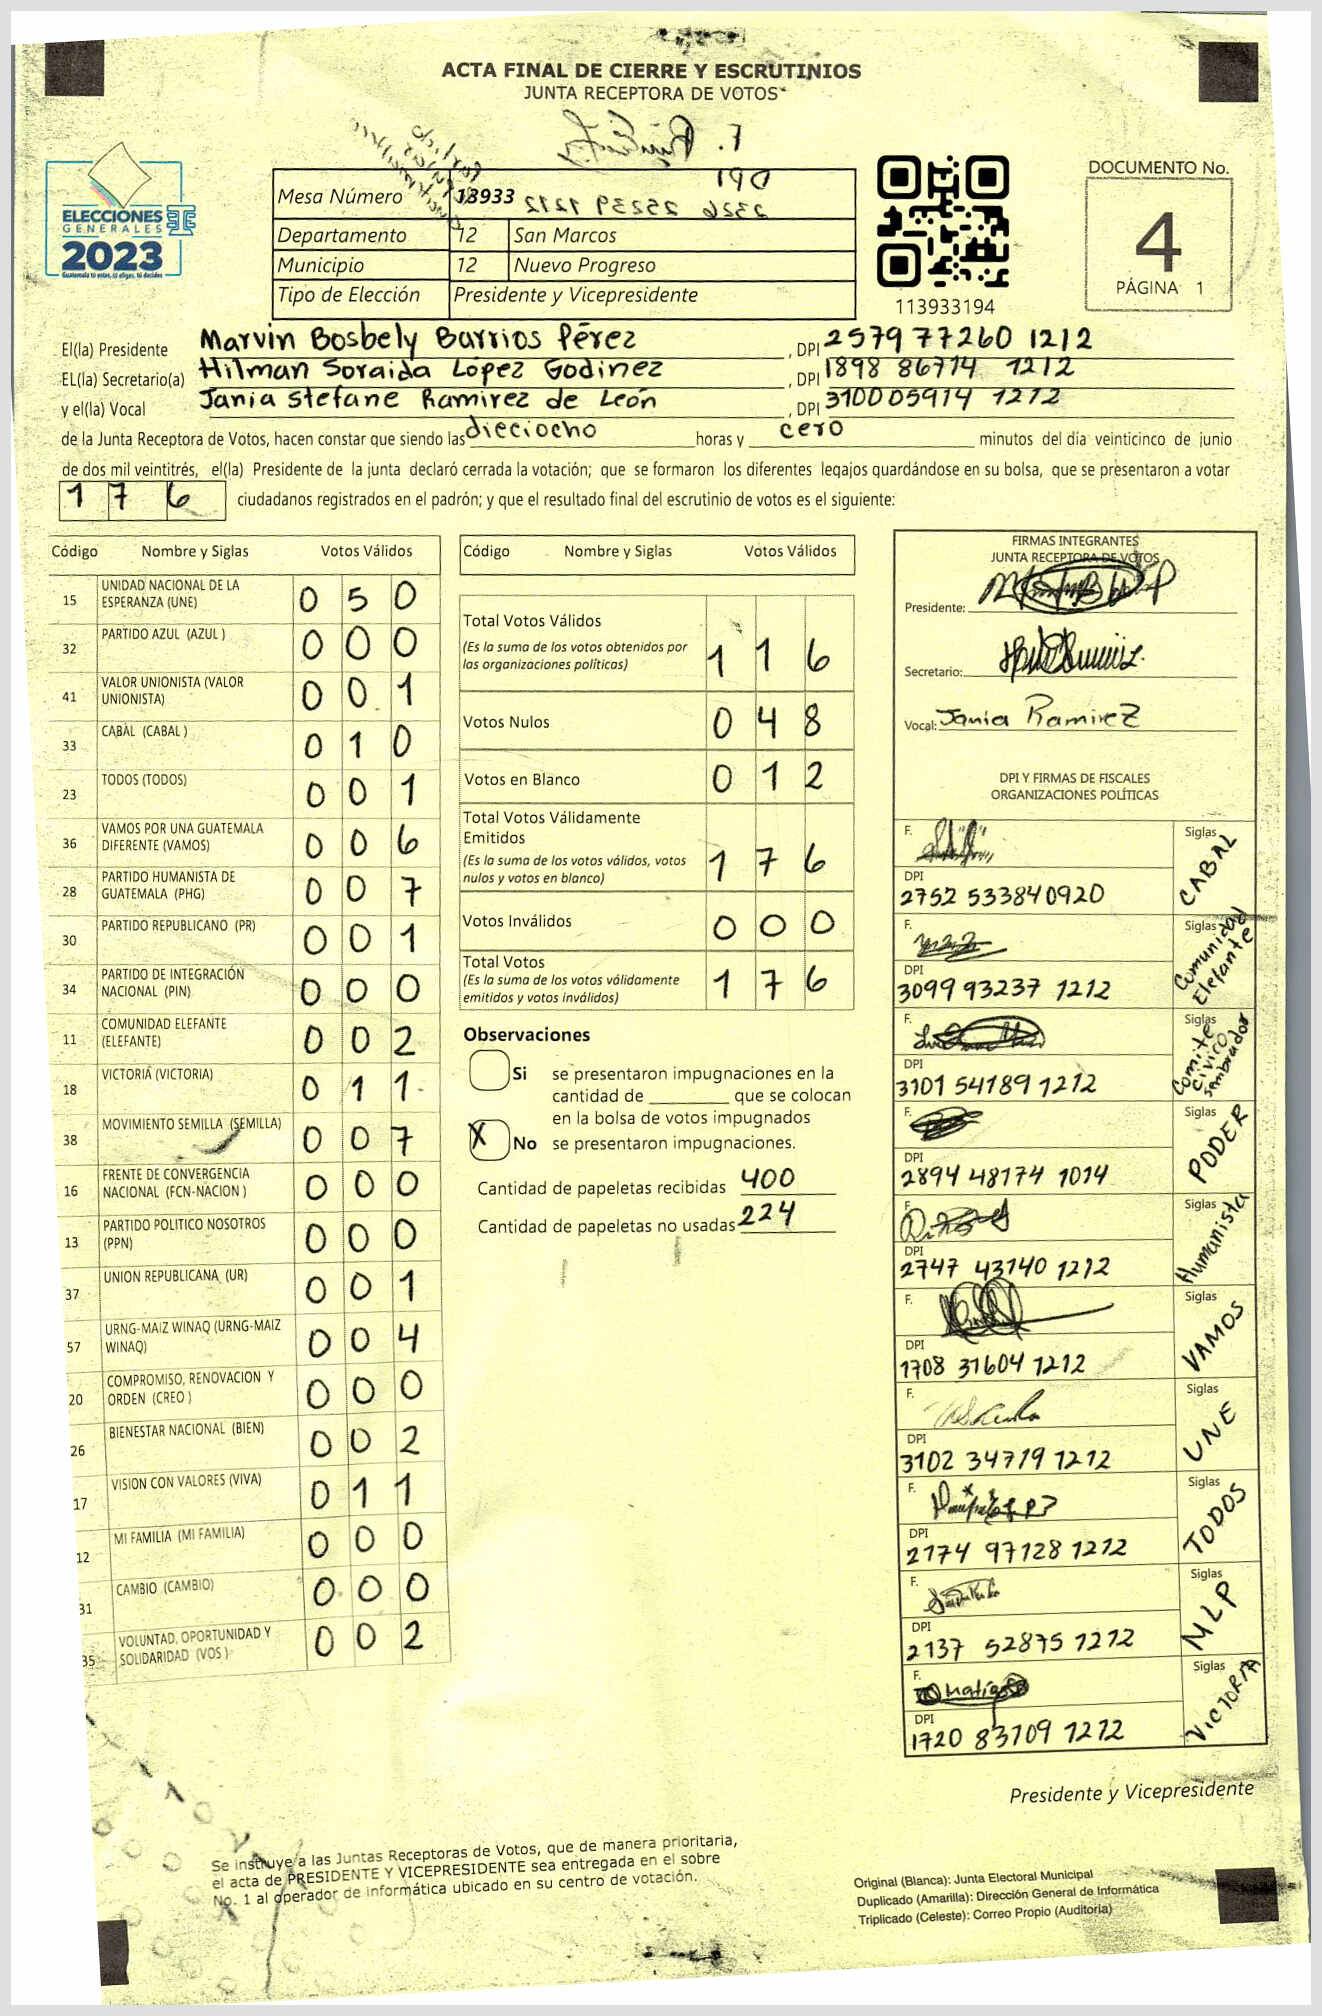 ACTA FINAL DE CIERRE Y ESCRUTINIOS
JUNTA RECEPTORA DE VOTOS
ELECCIONES
GENERALES
2023
Guatemala tú estas, tú eliges, tú decides
Mesa Número 13933
Departamento 12 San Marcos
Municipio 12 Nuevo Progreso
Tipo de Elección Presidente y Vicepresidente
113933194
DOCUMENTO No.
4
PÁGINA 1
El(la) Presidente Marvin Bosbely Barrios Pérez, DPI 2579 77260 1212
EL(la) Secretario(a) Hilman Soraida López Godinez, DPI 1898 86774 1212
y el(la) Vocal Jania Stefane Ramirez de León, DPI 3100 05914 1212
de la Junta Receptora de Votos, hacen constar que siendo las dieciocho horas y cero minutos del día veinticinco de junio
de dos mil veintitrés, el(la) Presidente de la junta declaró cerrada la votación; que se formaron los diferentes legajos quardándose en su bolsa, que se presentaron a votar
176 ciudadanos registrados en el padrón; y que el resultado final del escrutinio de votos es el siguiente:
Código Nombre y Siglas Votos Válidos
15 UNIDAD NACIONAL DE LA ESPERANZA (UNE) 050
32 PARTIDO AZUL (AZUL ) 000
41 VALOR UNIONISTA (VALOR UNIONISTA) 001
33 CABAL (CABAL ) 010
23 TODOS (TODOS) 001
36 VAMOS POR UNA GUATEMALA DIFERENTE (VAMOS) 006
28 PARTIDO HUMANISTA DE GUATEMALA (PHG) 007
30 PARTIDO REPUBLICANO (PR) 001
34 PARTIDO DE INTEGRACIÓN NACIONAL (PIN) 000
11 COMUNIDAD ELEFANTE (ELEFANTE) 002
18 VICTORIA (VICTORIA) 011
38 MOVIMIENTO SEMILLA (SEMILLA) 007
16 FRENTE DE CONVERGENCIA NACIONAL (FCN-NACION ) 000
13 PARTIDO POLITICO NOSOTROS (PPN) 000
37 UNION REPUBLICANA (UR) 001
57 URNG-MAIZ WINAQ (URNG-MAIZ WINAQ) 004
20 COMPROMISO, RENOVACION Y ORDEN (CREO ) 000
26 BIENESTAR NACIONAL (BIEN) 002
17 VISION CON VALORES (VIVA) 011
12 MI FAMILIA (MI FAMILIA) 000
31 CAMBIO (CAMBIO) 000
35 VOLUNTAD, OPORTUNIDAD Y SOLIDARIDAD (VOS ) 002
Código Nombre y Siglas Votos Válidos
Total Votos Válidos 116
(Es la suma de los votos obtenidos por
las organizaciones políticas)
Votos Nulos 048
Votos en Blanco 012
Total Votos Válidamente
Emitidos 176
(Es la suma de los votos válidos, votos
nulos y votos en blanco)
Votos Inválidos 000
Total Votos 176
(Es la suma de los votos válidamente
emitidos y votos inválidos)
Observaciones
Si se presentaron impugnaciones en la
cantidad de ________ que se colocan
en la bolsa de votos impugnados
X No se presentaron impugnaciones.
Cantidad de papeletas recibidas 400
Cantidad de papeletas no usadas 224
FIRMAS INTEGRANTES
JUNTA RECEPTORA DE VOTOS
Presidente:
Secretario:
Vocal: Jania Ramirez
DPI Y FIRMAS DE FISCALES
ORGANIZACIONES POLÍTICAS
F. Siglas CABAL
DPI
2752 53384 0920
F. Siglas Comunidad Elefante
DPI
3099 93237 1212
F. Siglas Comite Civico Sembrador
DPI
3101 54189 1212
F. Siglas PODER
DPI
2894 48174 1014
F. Siglas Humanista
DPI
2747 43140 1212
F. Siglas VAMOS
DPI
1708 31604 1212
F. Siglas UNE
DPI
3102 34719 1212
F. Siglas TODOS
DPI
2174 97128 1212
F. Siglas MLP
DPI
2137 52875 1212
F. Siglas VICTORIA
DPI
1720 83109 1212
Presidente y Vicepresidente
Se instruye a las Juntas Receptoras de Votos, que de manera prioritaria,
el acta de PRESIDENTE Y VICEPRESIDENTE sea entregada en el sobre
No. 1 al operador de informática ubicado en su centro de votación.
Original (Blanca): Junta Electoral Municipal
Duplicado (Amarilla): Dirección General de Informática
Triplicado (Celeste): Correo Propio (Auditoria)